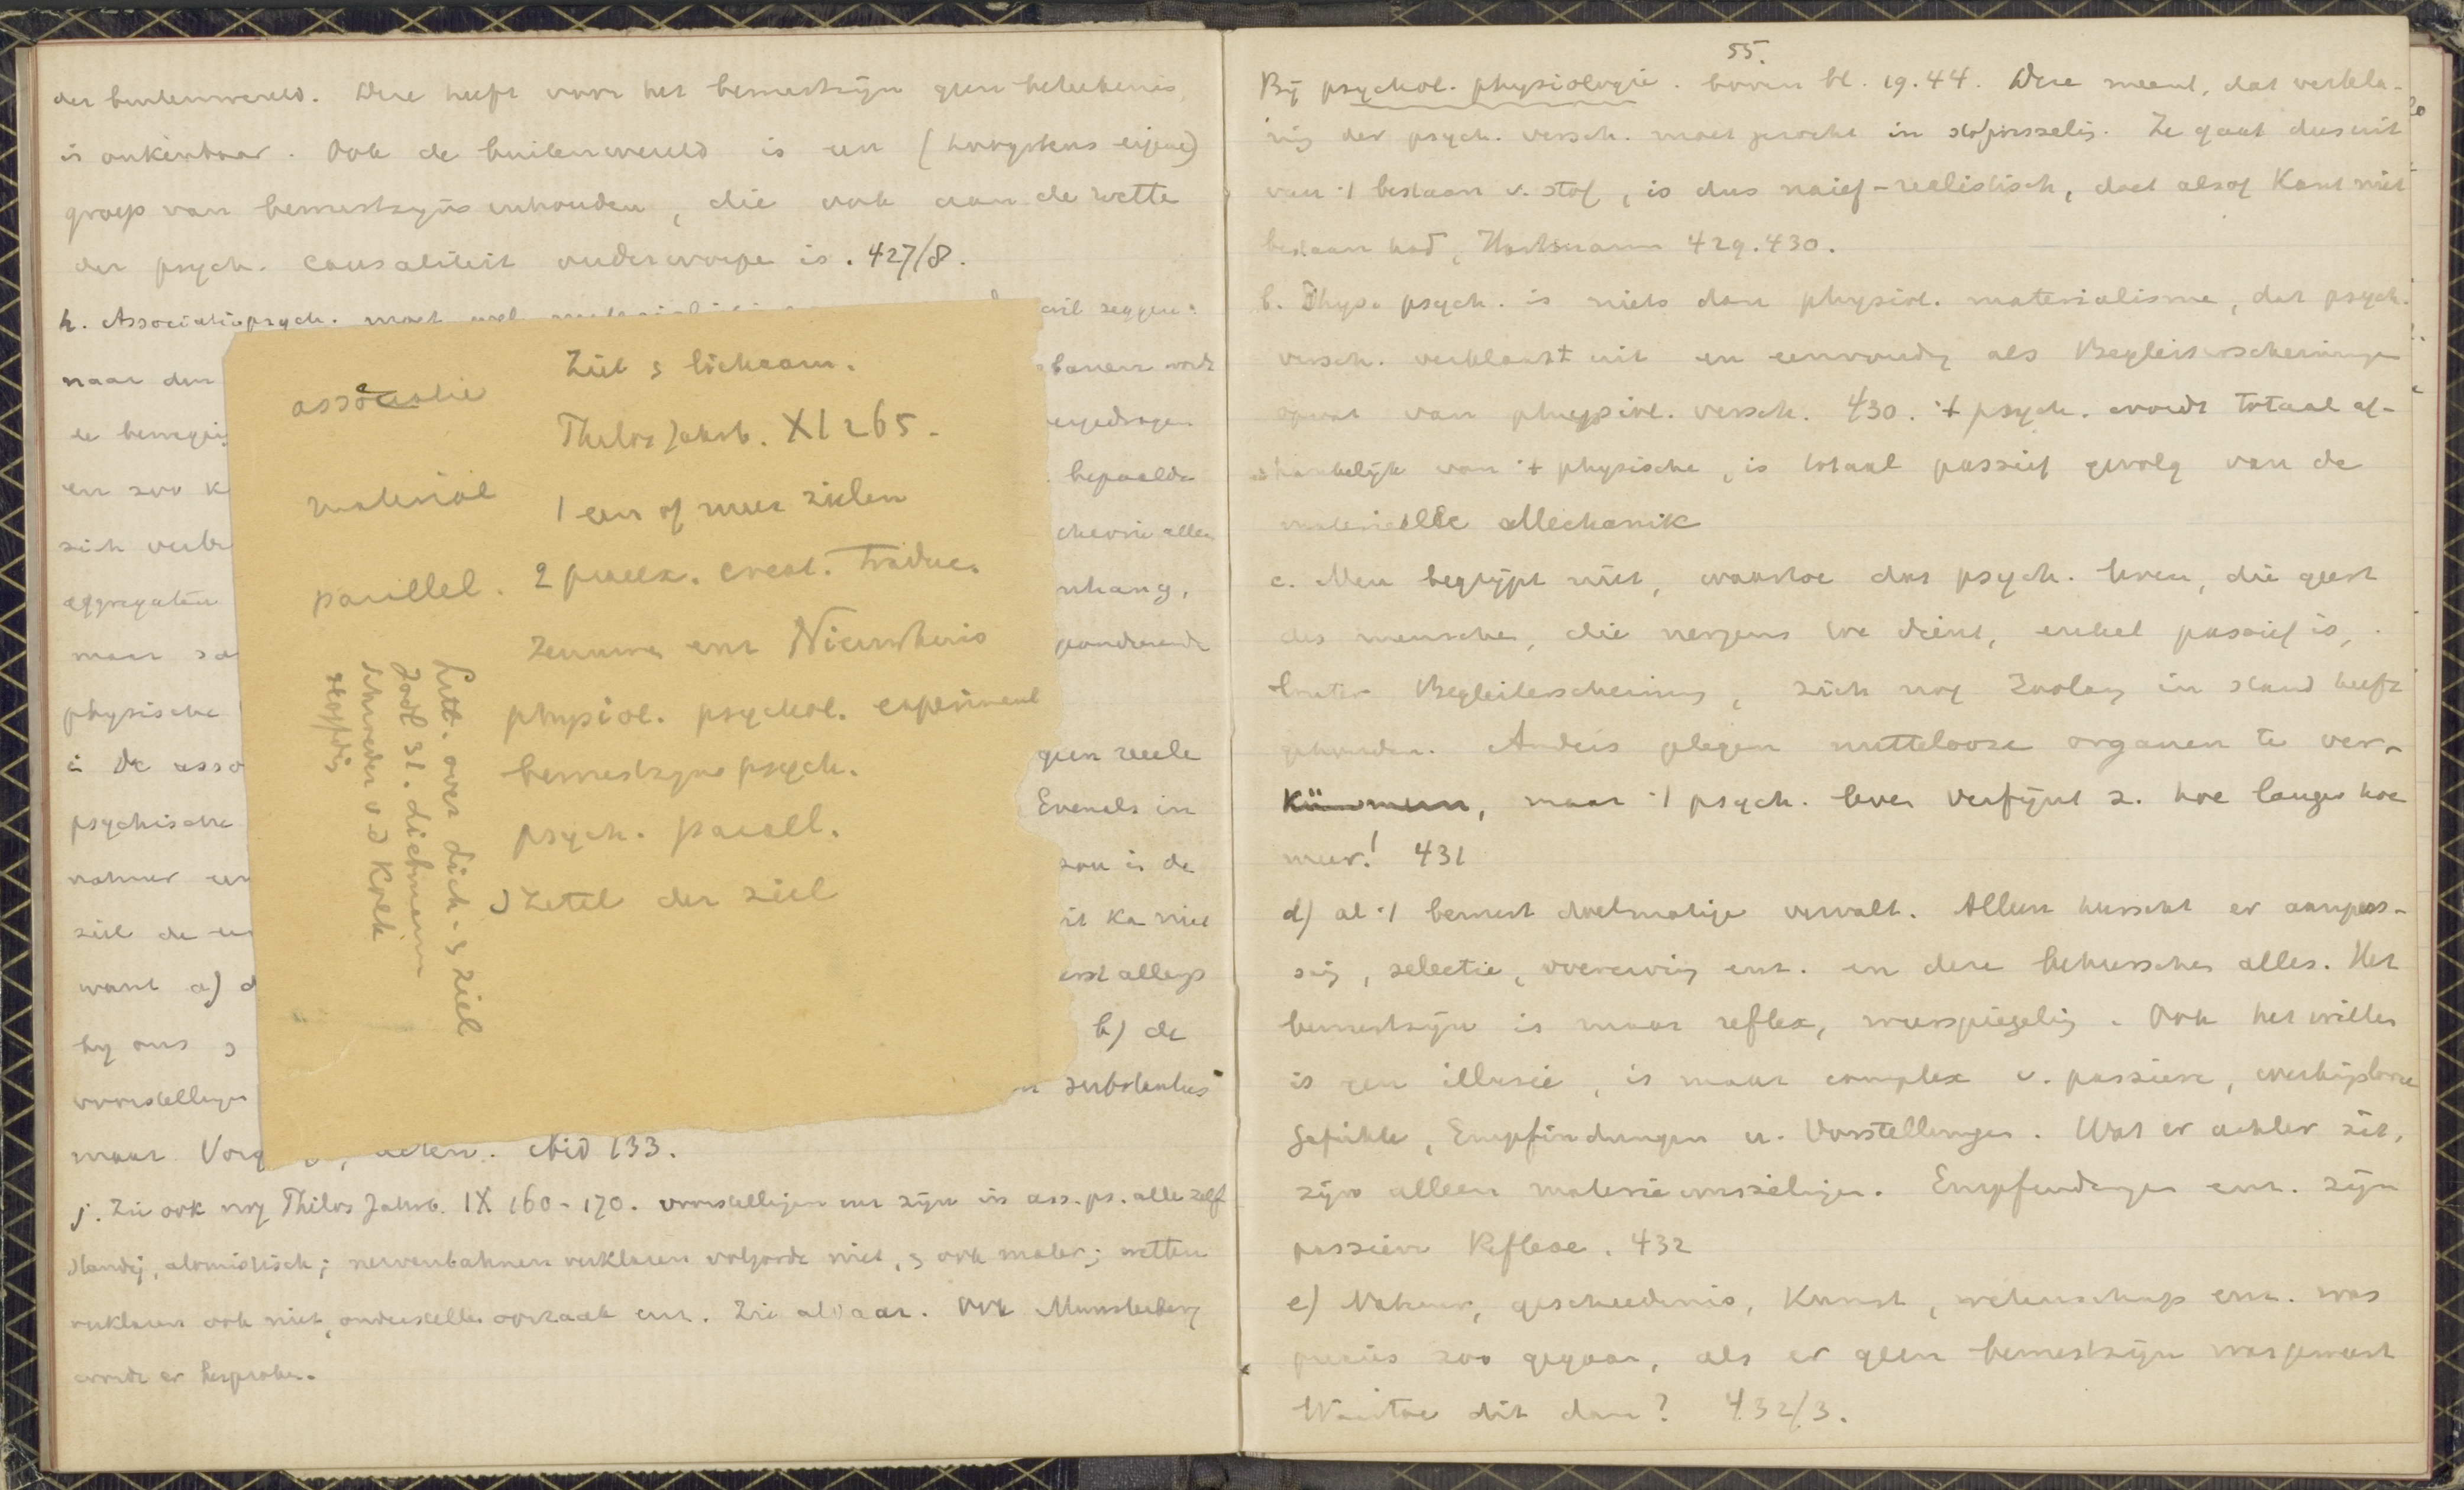 der buitenwereld. Deze heeft voor het bewustzijn geen beteekenis,
is onkenbaar. Ook de buitenwereld is een (hoogstens eigene)
groep van bewustzijns inhouden, die ook aan de wette
der psych. causaliteit onderworpe is. 427/8.
h. Associatiepsych. moet wel
wil zeggen:
naar den
banen wordt
de beweging
bepaalde
en zoo k
zich verbi
aggregaten
nhang,
maar
physische
i De asso
geen reele
psychische
Evenals in
zou is de
ziel de
it ka niet
want a) d
by ons
b) de
voorstellingen
substantus
maar ibid 133.
j. Zie ook nog Philos Jahrb. IX 160-170. voorstellingen enz zijn in ass. ps. alle zelf
standig, atomistisch; nervenbahnen verklaren volgorde niet, ook mater; wetten
verklaren ook niet, onderstellen oorzaak enz. Zie aldaar. Ook Munsterberg
wordt er besproken.
associatie
material
parallel.
Ziel & lichaam.
Philos Jahrb. XI 265.
1 een of meer zielen
2 praeex. creat. traduc.
zenuwen enz Nieuwhuis
physiol. psychol. experiment
bewustzijns psych.
psych. parall.
zetel der ziel
Litt. over lich. & ziel
Jodl 31. Lichtmann
Schroeder v d Kolk
55.
Bij psychol. physiologie. boven bl. 19.44. Deze meent, dat verkla-
ring der psych. versch. moet gezocht in stofwisseling. Ze gaat dus uit
van 't bestaan v. stof, is dus naief-realistisch, doet alsof Kant niet
bestaan had, Hartmann 429.430.
b. Phys. psych. is niets dan physiol. materialisme, dat psych.
versch. verklaart uit en eenvoudig als Begleiterscheinungen
opvat van physiol. versch. 430. 't psych. wordt totaal af-
hankelijk van 't physische, is totaal passief gevolg van de
materielle Mechanik
c. Men begrijpt niet, waartoe dat psych. leven, die geest
des menschen, die nergens toe dient, enkel passief is,
Begleiterscheinung, zich nog zoolang in stand heeft
gehouden. Anders plegen nuttelooze organen te ver-
kümmern, maar 't psych. leven verfijnt z. hoe langer hoe
meer! 431
d) al 't bewust doelmatige vervalt. Alleen heerscht er aanpas-
sing, selectie, overerving enz. en deze beheerschen alles. Het
bewustzijn is maar reflex, weerspiegeling. Ook het willen
is een illusie, is maar complex v. passieve, werkingslooze
Gefühle, Empfindungen u. Vorstellungen. Wat er achter zit,
zijn alleen materie wisselingen. Empfindungen enz. zijn
passieve Reflexe. 432
e) Natuur, geschiedenis, Kunst, wetenschap enz. was
precies zoo gegaan, als er geen bewustzijn was geweest
Waartoe dit dan? 432/3.